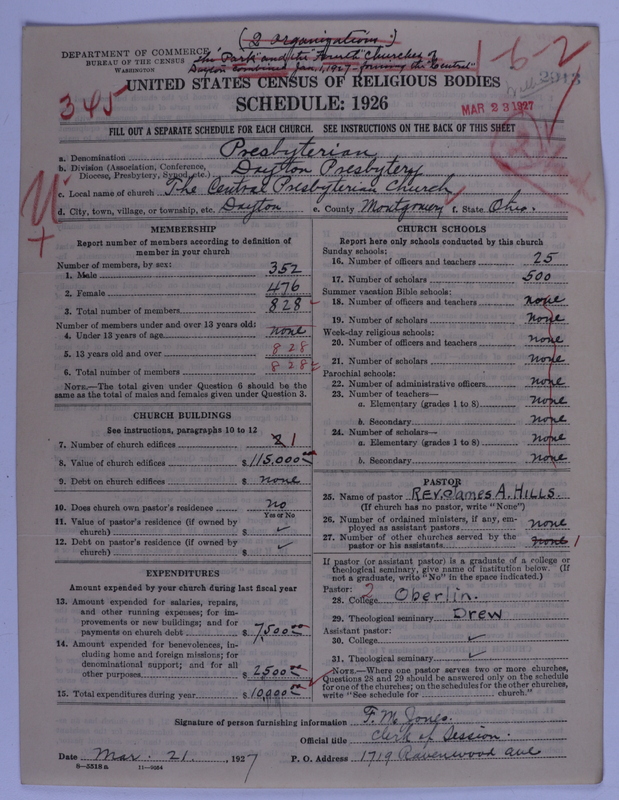 (2 organizations)
DEPARTMENT OF COMMERCE
BUREAU OF THE CENSUS
WASHINGTON
The "Park" and the "Fourth" Churches of
Dayton combined Jan. 1, 1927 forming the "Central"
1-6-2
345
MAR 23 1927
UNITED STATES CENSUS OF RELIGIOUS BODIES
SCHEDULE: 1926
FILL OUT A SEPARATE SCHEDULE FOR EACH CHURCH. SEE INSTRUCTIONS ON THE BACK OF THIS SHEET
a. Denomination Presbyterian
b. Division (Association, Conference, Diocese, Presbytery, Synod, etc.) Dayton Presbytery
c. Local name of church The Central Presbyterian Church
d. City, town, village, or township, etc. Dayton e. County Montgomery f. State Ohio.
MEMBERSHIP
Report number of members according to definition of
member in your church
Number of members, by sex:
1. Male 352
2. Female 476
3. Total number of members 828
Number of members under and over 13 years old:
4. Under 13 years of age none
5. 13 years old and over 828
6. Total number of members 828
NOTE.—The total given under Question 6 should be the
same as the total of males and females given under Question 3.
CHURCH BUILDINGS
See instructions, paragraphs 10 to 12
7. Number of church edifices 2 1
8. Value of church edifices $ 115,000 00
9. Debt on church edifices $ none
10. Does church own pastor's residence? no
Yes or No
11. Value of pastor's residence (if owned by
church) $ ✓
12. Debt on pastor's residence (if owned by
church) $ ✓
EXPENDITURES
Amount expended by your church during last fiscal year
13. Amount expended for salaries, repairs,
and other running expenses; for im-
provements or new buildings; and for
payments on church debt $ 7,500 00
14. Amount expended for benevolences, in-
cluding home and foreign missions; for
denominational support; and for all
other purposes $ 2500 00
15. Total expenditures during year $ 10,000 00
CHURCH SCHOOLS
Report here only schools conducted by this church
Sunday schools:
16. Number of officers and teachers 25
17. Number of scholars 500
Summer vacation Bible schools:
18. Number of officers and teachers none
19. Number of scholars none
Week-day religious schools:
20. Number of officers and teachers none
21. Number of scholars none
Parochial schools:
22. Number of administrative officers none
23. Number of teachers—
a. Elementary (grades 1 to 8) none
b. Secondary none
24. Number of scholars—
a. Elementary (grades 1 to 8) none
b. Secondary none
PASTOR
25. Name of pastor REV. James A. HILLS.
(If church has no pastor, write "None")
26. Number of ordained ministers, if any, em-
ployed as assistant pastors none
27. Number of other churches served by the
pastor or his assistants none 1
If pastor (or assistant pastor) is a graduate of a college or
theological seminary, give name of institution below. (If
not a graduate, write "No" in the space indicated.)
Pastor:
28. College 2 Oberlin.
29. Theological seminary Drew
Assistant pastor:
30. College ✓
31. Theological seminary ✓
NOTE.—Where one pastor serves two or more churches,
Questions 28 and 29 should be answered only on the schedule
for one of the churches; on the schedules for the other churches,
write "See schedule for church."
Signature of person furnishing information F. M. Jones.
Official title Clerk of Session.
Date Mar. 21, 1927 P. O. Address 1719 Ravenwood Ave
8—5518a 11—9054